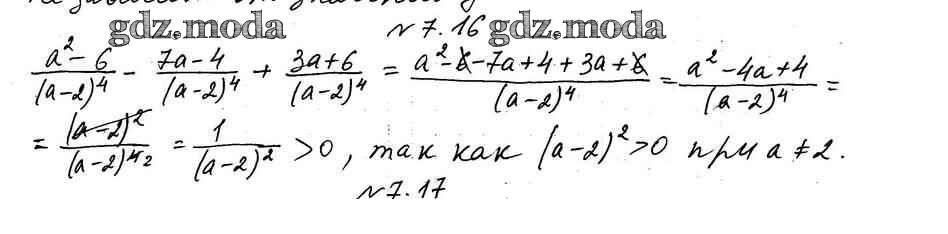 №7.16
gdz.moda gdz.moda
(a²-6)/(a-2)⁴ - (7a-4)/(a-2)⁴ + (3a+6)/(a-2)⁴ = (a²-6-7a+4+3a+6)/(a-2)⁴ = (a²-4a+4)/(a-2)⁴ =
= (a-2)²/(a-2)⁴ 2 = 1/(a-2)² >0, так как (a-2)²>0 при a≠2.
№7.17